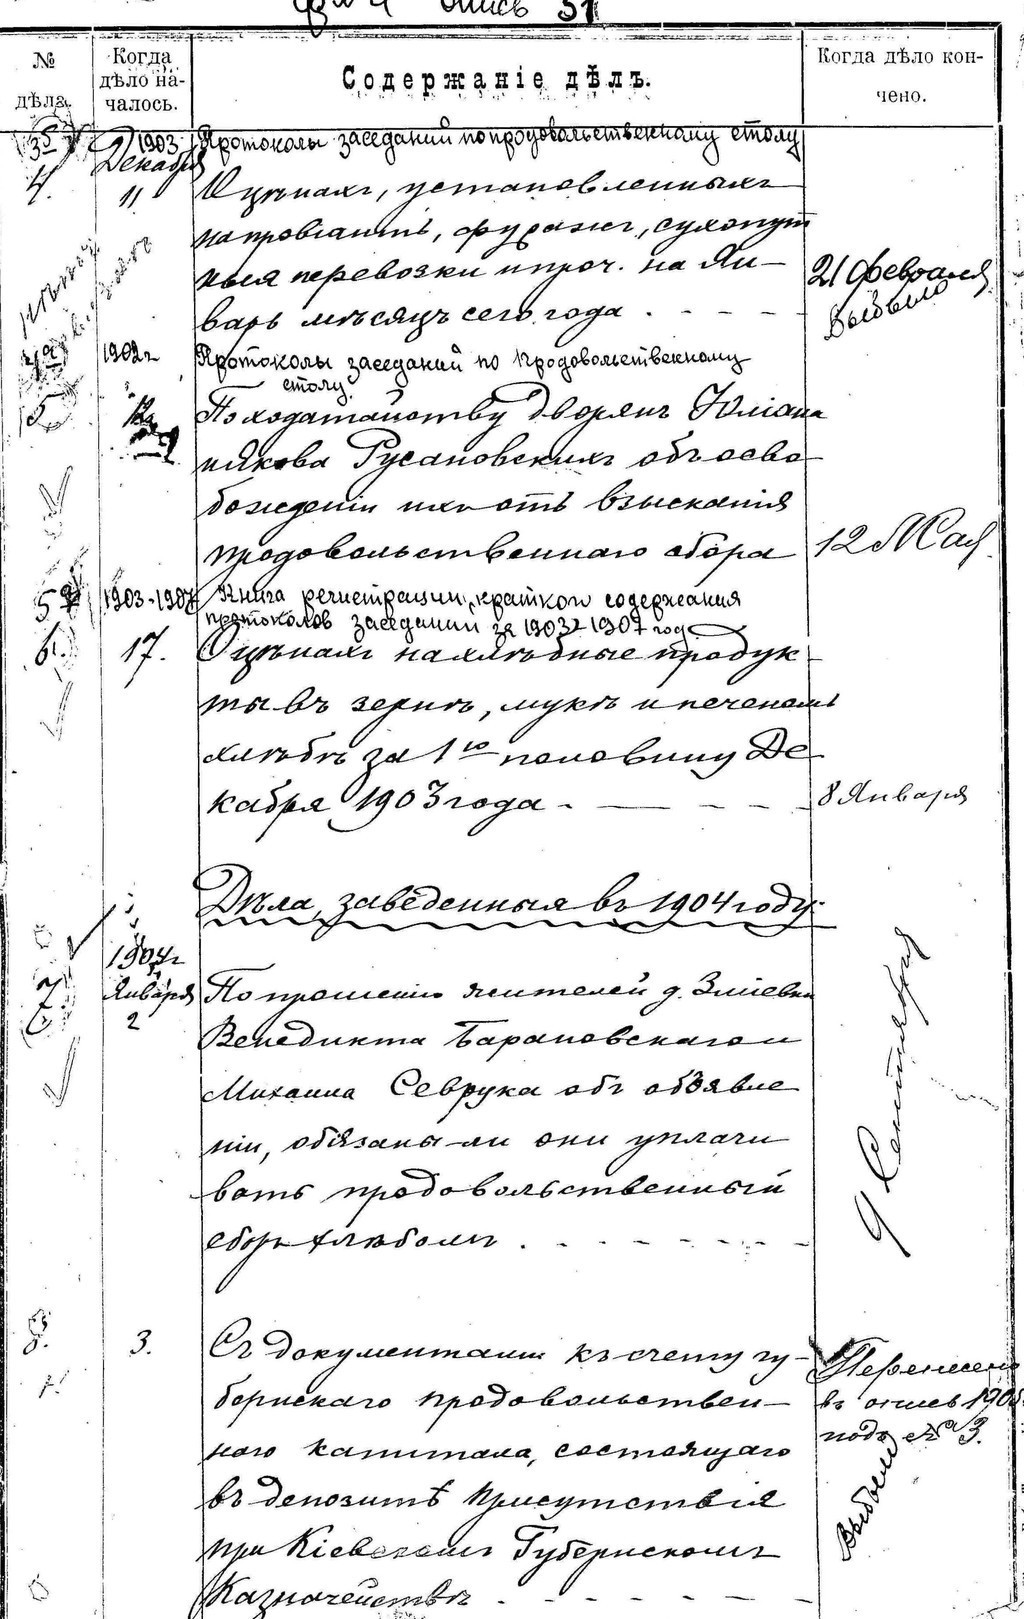 опись 51
№ дѣла.
Когда дѣло началось.
Содержаніе дѣлъ.
Когда дѣло кончено.
1903 Протоколы заседаний по продовольственному столу
4. Декабря 11
О цѣнахъ, установленныхъ
на провіантъ, фуражъ, сухопут
ныя перевозки и проч. на Ян-
варь мѣсяцъ сего года . - - - -
21 Февраля
Выбыло
1902г Протоколы заседаний по продовольственному
столу
5
По ходатайству дворянъ Юліана
и Якова Русановскихъ объ осво
божденіи ихъ отъ взысканія
продовольственнаго сбора
12 Мая
5а 1903-1907 Книга регистрации, краткого содержания
протоколов заседаний за 1903-1907 год
6. 17. О цѣнахъ на хлѣбные продук-
ты въ зернѣ, мукѣ и печеномъ
хлѣбѣ за 1ую половину Де
кабря 1903 года - — - - -
8 Января
Дѣла, заведенныя въ 1904 году:
1904г
7. Января 2
По прошенію жителей д. Зміевки
Венедикта Барановскаго и
Михаила Севрука объ объявле
ніи, обязаны-ли они уплачи
вать продовольственный
сборъ хлѣбомъ . - - - - - - -
9 Сентября
8. 3. Съ документами къ счету гу-
бернскаго продовольствен-
наго капитала, состоящаго
въ депозитѣ Присутствія
при Кіевскомъ Губернскомъ
Казначействѣ . - - - - - -
Перенесено
въ опись 1905
подъ № 3.
Выбыло